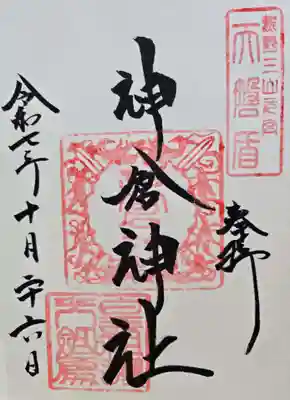 熊野三山之元
天磐盾
奉拝
神倉神社
令和七年十月廿六日